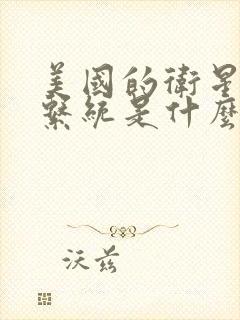 美國的衛星
繫統是什麼
沃茲